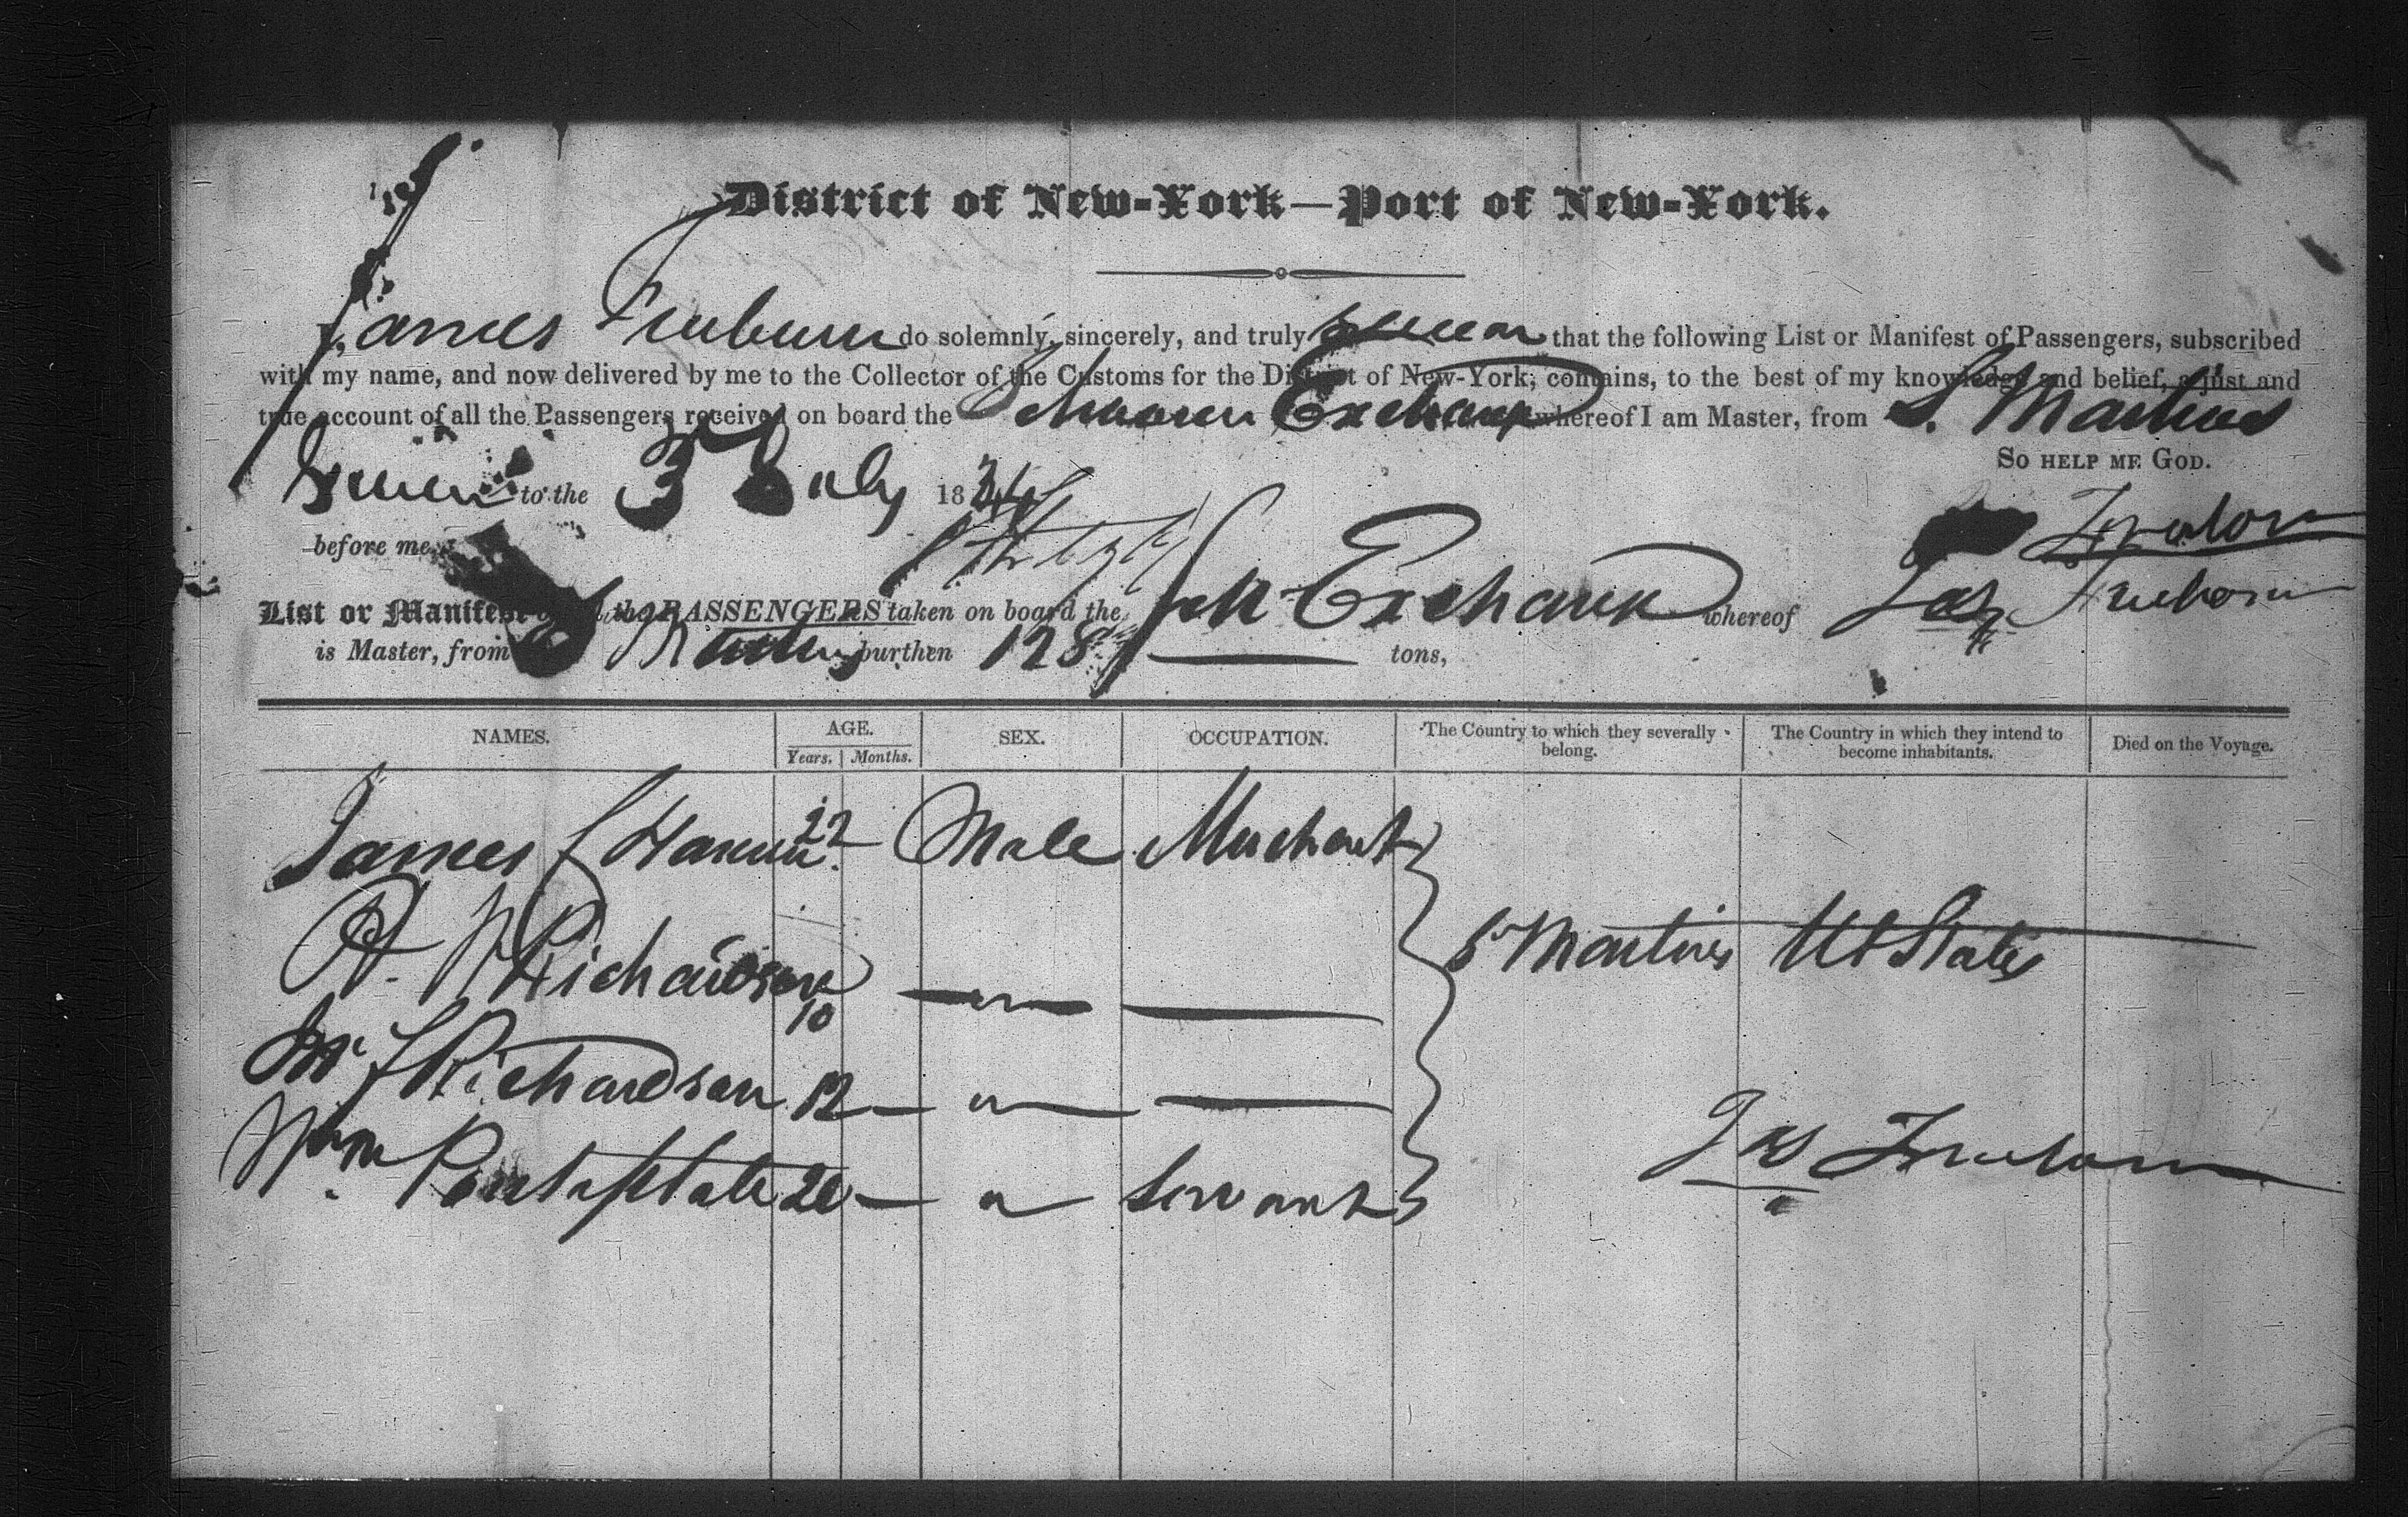 District of New-York—Port of New-York.
James do solemnly, sincerely, and truly swear that the following List or Manifest of Passengers, subscribed
with my name, and now delivered by me to the Collector of the Customs for the District of New-York, contains, to the best of my knowledge and belief, a just and
true account of all the Passengers received on board the Schooner Exchange whereof I am Master, from St. Martins
So help me God.
Sworn to the 3d July 183
before me
List or Manifest of all the PASSENGERS taken on board the Schr Exchange whereof Jas
is Master, from St Martins burthen 128 tons,
NAMES. AGE. SEX. OCCUPATION. The Country to which they severally belong. The Country in which they intend to become inhabitants. Died on the Voyage.
Years. Months.
James 22 Male Merchant
St Martins U States
Richardson 10
Richardson 12
Wm 20 Servant
Jas